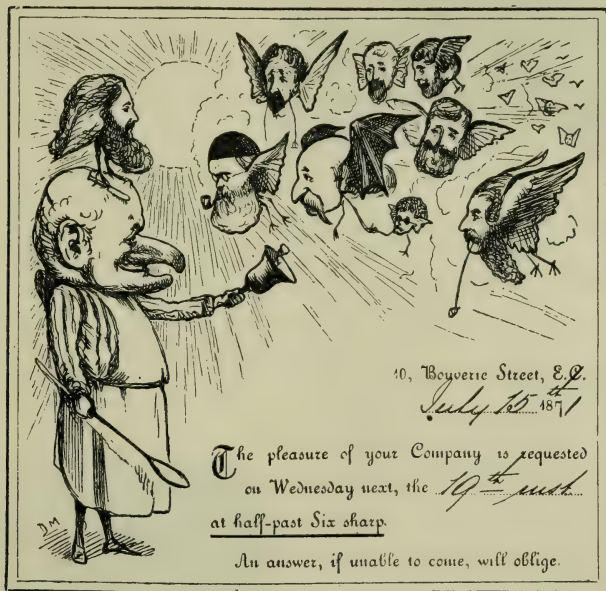 10, Bouverie Street, E.C.
July 15th 1871
The pleasure of your Company is requested
on Wednesday next, the 19th inst
at half-past Six sharp.
An answer, if unable to come, will oblige.
DM